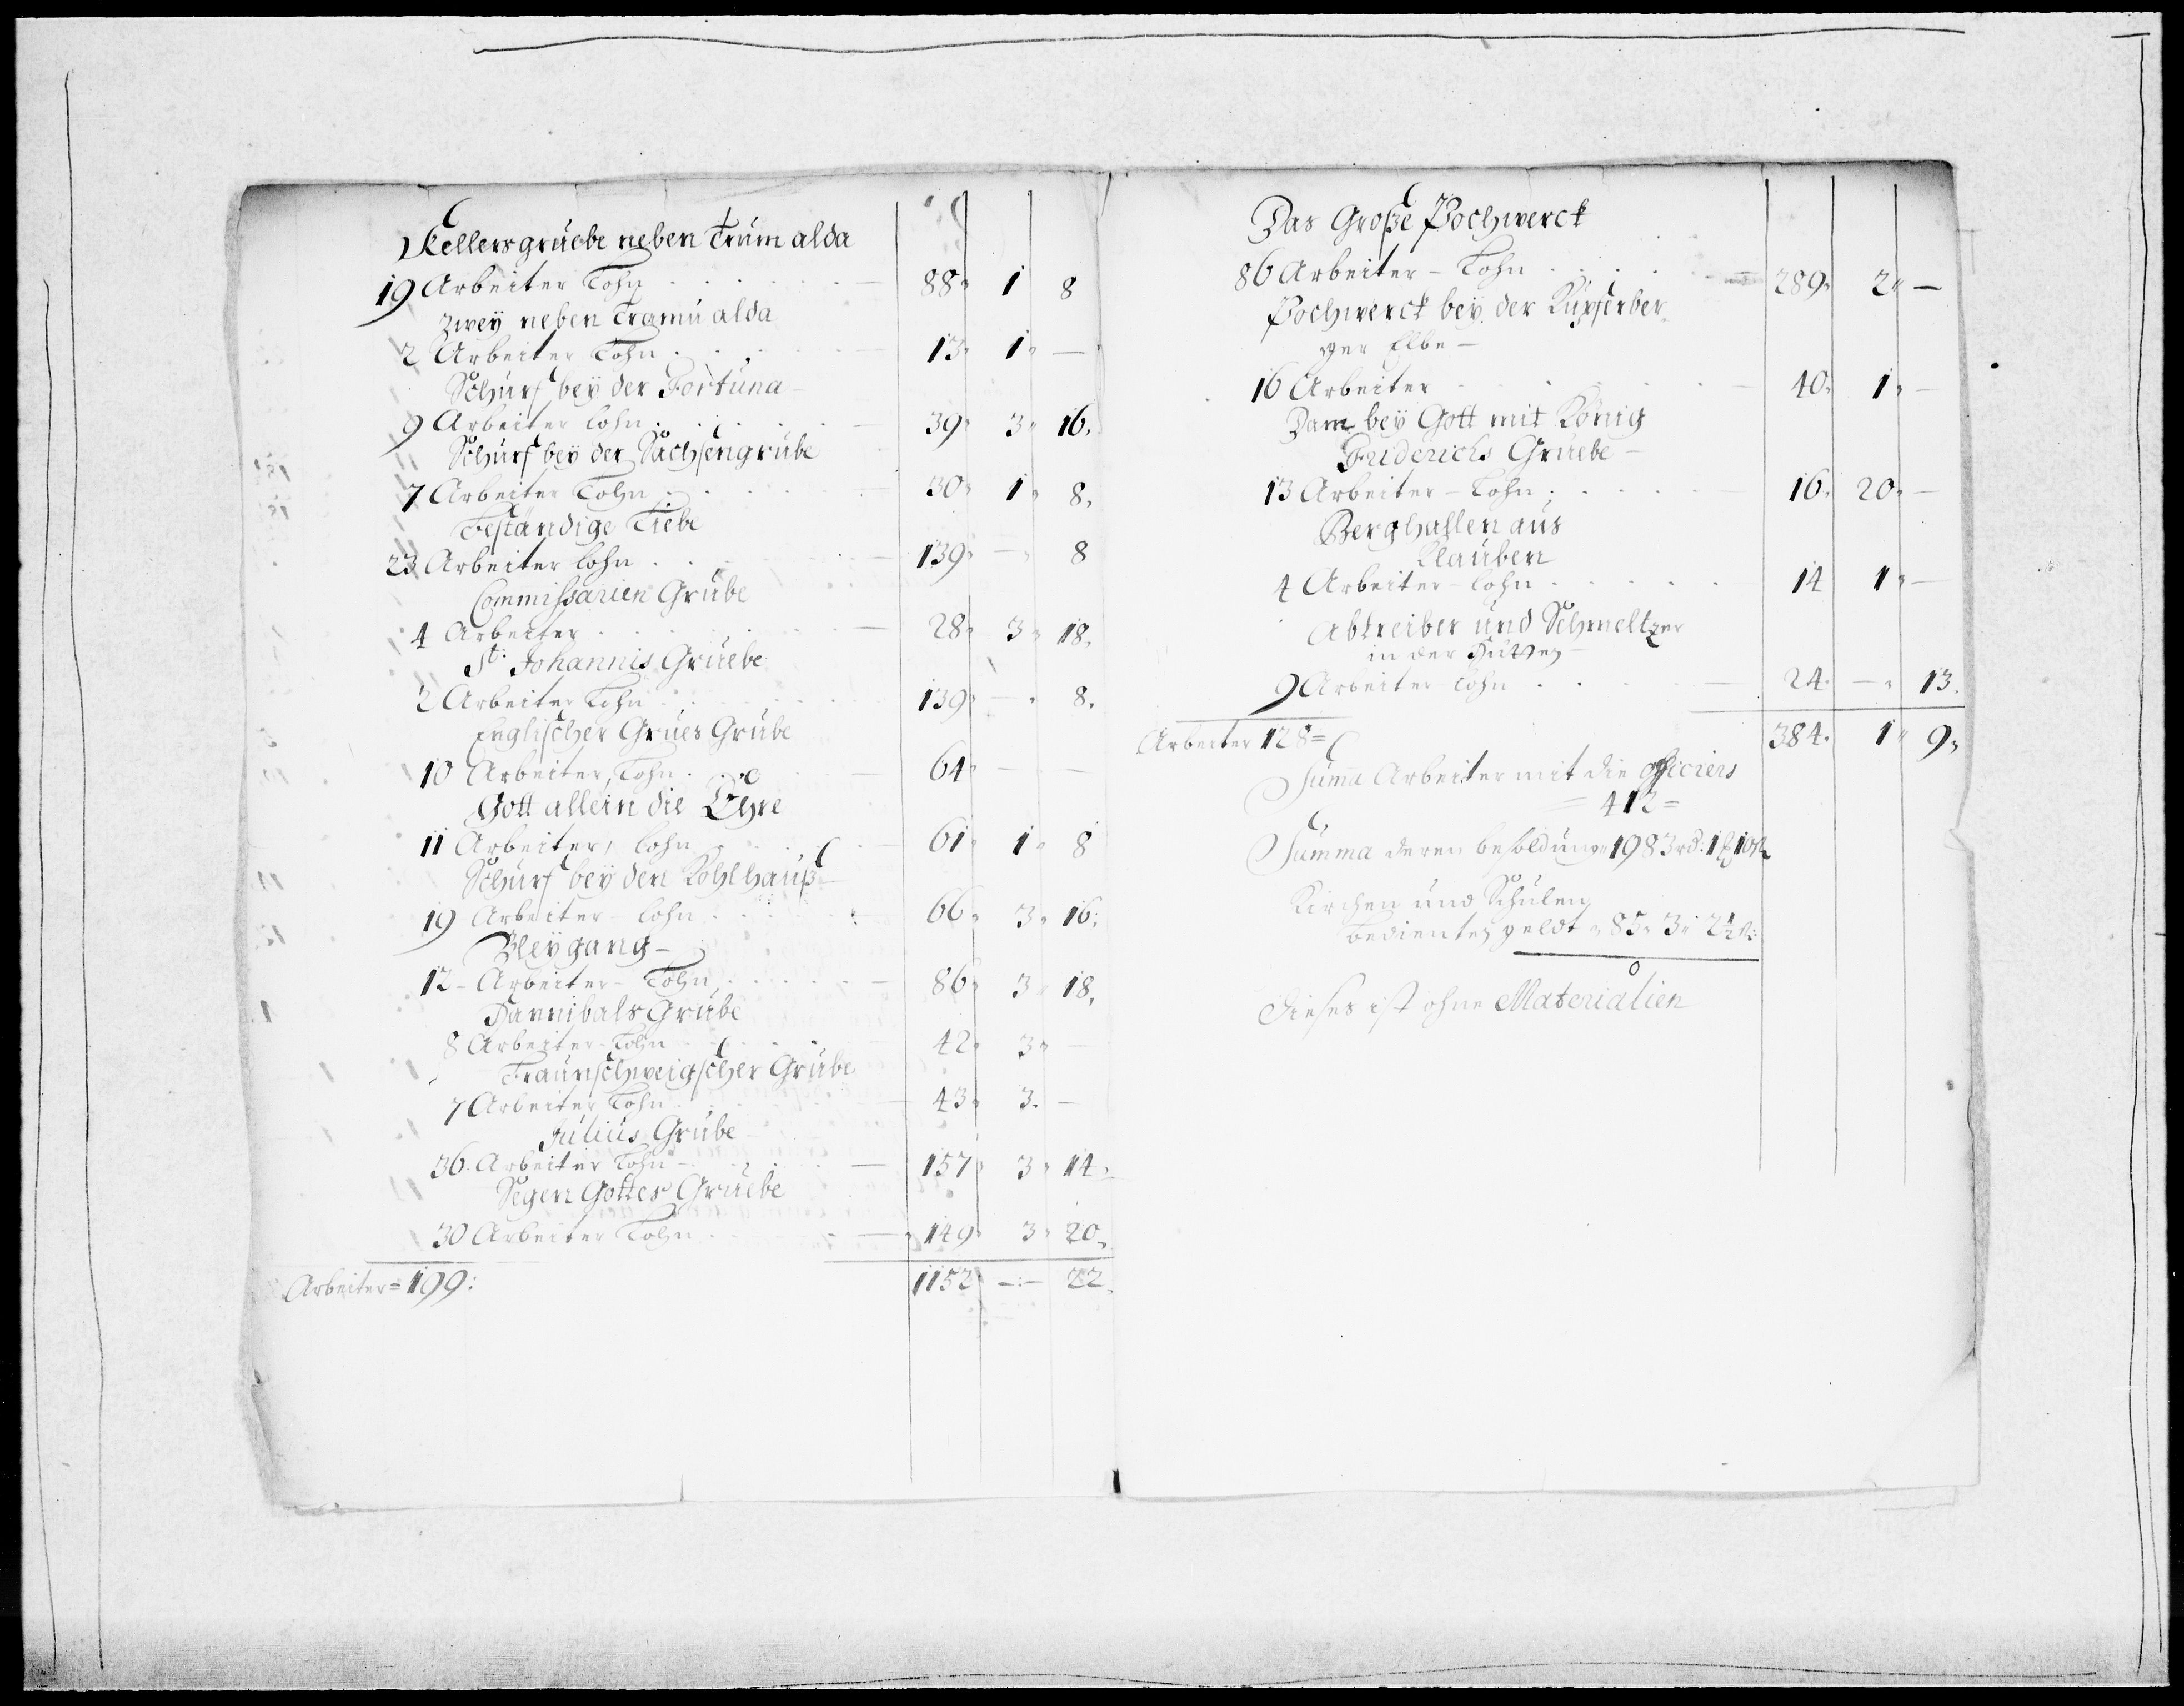 Kellersgruebe neben Trumalda
19 Arbeiter Lohn 88 " 1 8
Zwey neben Tramualda
2 Arbeiter Lohn 13 " 1 " —
Schurf bey der Fortuna
9 Arbeiter Lohn 39 " 3 " 16.
Schurf bey der Sachsengrube
7 Arbeiter Lohn 30 " 1 " 8.
Beständige Liebe
23 Arbeiter Lohn 139 " — " 8
Commissarien Grube
4 Arbeiter 28 " 3 " 18.
St: Johannis Gruebe
2 Arbeiter Lohn 139 " — " 8.
Englischer Grues Grube
10 Arbeiter, Lohn 64 " — —
Gott allein die Ehre
11 Arbeiter, Lohn 61 " 1 " 8
Schurf bey den Kohlhauß
19 Arbeiter - Lohn 66 " 3 " 16:
Bleygang —
12 - Arbeiter - Lohn 86 " 3 " 18.
Hannibals Grube
8 Arbeiter - Lohn 42 " 3 " —
Braunschweigscher Grube
7 Arbeiter Lohn 43 " 3. —
Julius Grube
36. Arbeiter Lohn 157 " 3 " 14.
Segen Gottes Gruebe
30 Arbeiter Lohn 149 " 3 " 20.
Arbeiter = 199: 1152 —:— 22.
Das Große Pochwerck
86 Arbeiter - Lohn 289 " 2 " —
Pochwerck bey der Kupferber
ger Elbe —
16 Arbeiter 40 " 1 " —
Dam bey Gott mit König
Friderichs Gruebe —
13 Arbeiter - Lohn 16. 20 " —
Berghallen aus
Klauben
4 Arbeiter - Lohn 14 1 " —
Abtreiber und Schmeltzer
in der Hütten —
9 Arbeiter Lohn 24. — " 13.
Arbeiter 128 = 384. 1 " 9 "
Summa Arbeiter mit die officiers
= 412 =
Summa deren besoldung 1983 rd: 1 10
Kirchen und Schulen
bedienten geldt " 85 " 3 " 2½ ß:
Dieses ist ohne Materialien